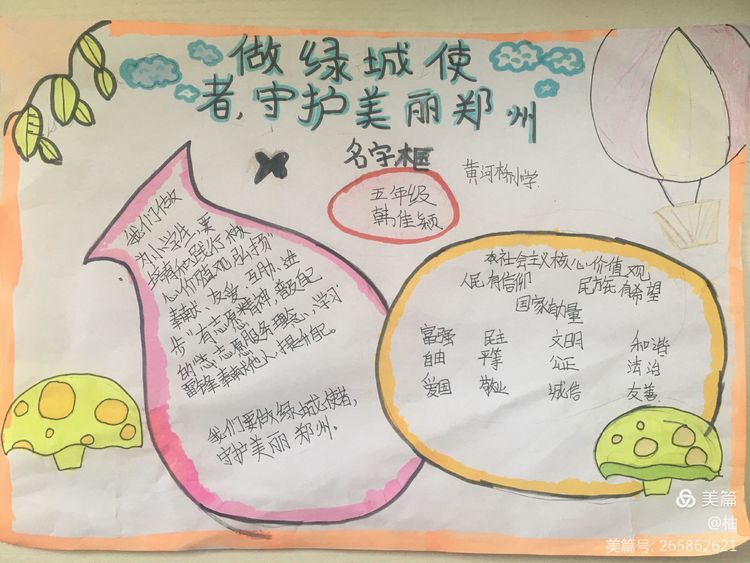 做绿城使
者,守护美丽郑州
名字框
黄河 小学
五年级
韩佳颖
我们做
为小学生,要
培育和践行核
心价值观,弘扬
奉献、友爱、互助、进
步"有志愿精神,普及
的"志愿服务理念,学习
雷锋奉献他人,提升自己。
我们要做绿城使者,
守护美丽郑州。
社会主义核心价值观
人民有信仰 民族有希望
国家有力量
富强 民主 文明 和谐
自由 平等 公正 法治
爱国 敬业 诚信 友善
美篇
@柚
美篇号: 265862621